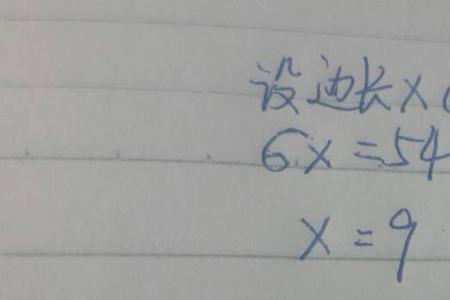 设边长x(
6x=54
x=9